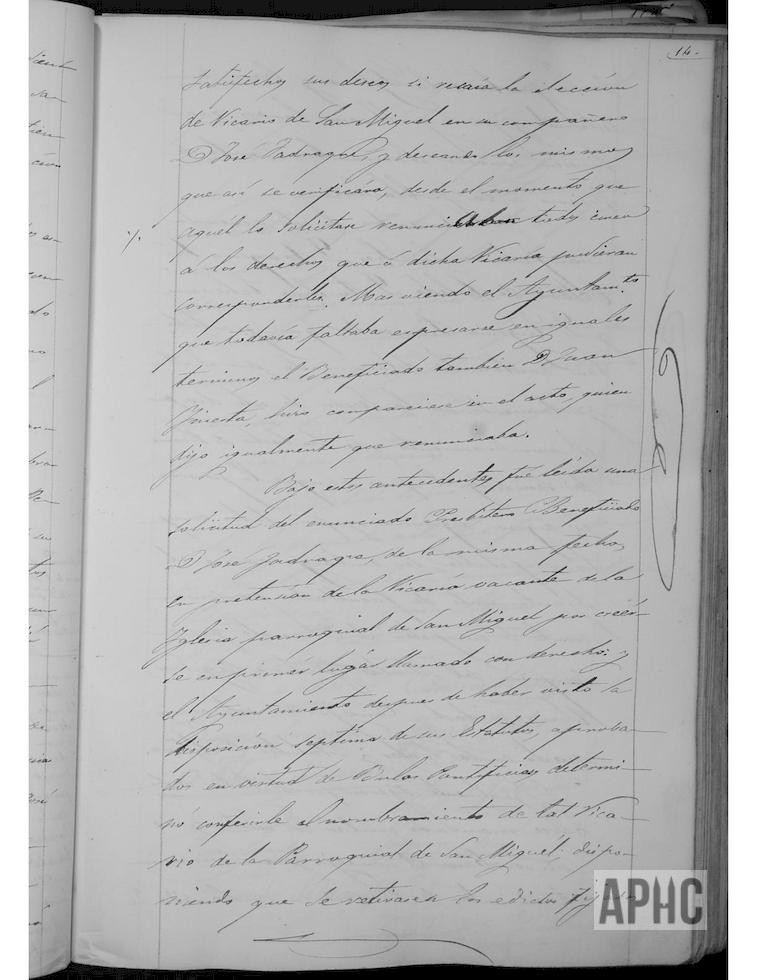 14.
satisfechos sus deseos si recaía la eleccion
de Vicario de San Miguel en su compañero
D José Jadraque, y deseando los mismos
que así se verificára, desde el momento que
aquél lo solicitase renunciaban todos
á los derechos que á dicha Vicaría pudieran
corresponderles. Mas viendo el Ayuntam.to
que todavía faltaba espresarse en iguales
terminos el Beneficiado tambien D Juan
hizo comparecer en el acto, quien
dijo igualmente que renunciaba.
Bajo estos antecedentes, fué leida una
solicitud del enunciado Presbítero Beneficiado
D José Jadraque, de la misma fecha,
en pretension de la Vicaría vacante de la
Iglesia parroquial de San Miguel por creér-
se en primer lugár llamado con derecho: y
el Ayuntamiento despues de haber visto la
disposicion septima de sus Estatutos, aproba-
dos en virtud de Bulas Pontificias, determi-
nó conferirle el nombramiento de tal Vica-
rio de la Parroquial de San Miguel, dispo-
niendo que se retirasen los edictos
APHC